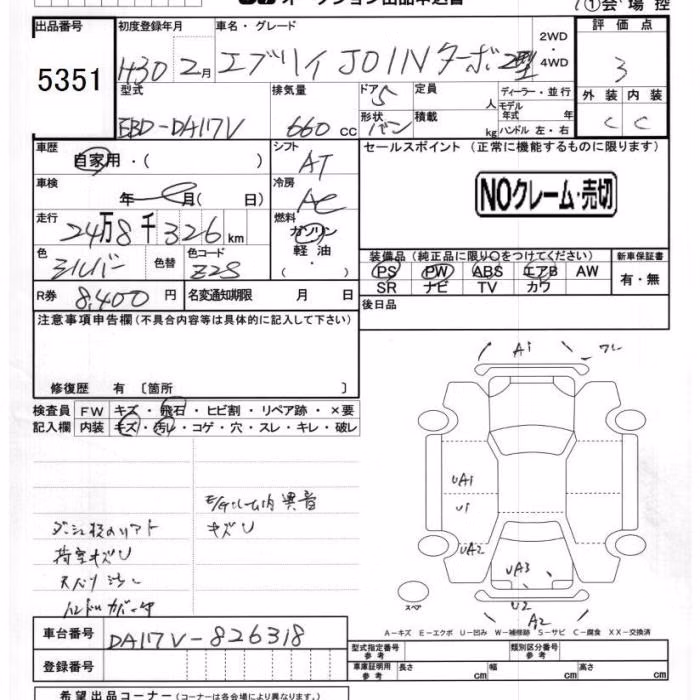 オークション出品申込書
①会場控
出品番号
5351
初度登録年月
H30 2月
車名・グレード
エブリイ JOINターボ 2型
2WD
4WD
評価点
3
型式
EBD-DA17V
排気量
660 cc
ドア 5
形状 バン
定員 人
積載 kg
ディーラー・並行
モデル年式 年
ハンドル 左・右
外装 内装
C C
車歴
自家用・( )
シフト
AT
セールスポイント (正常に機能するものに限ります)
NOクレーム・売切
車検
年 月( 日)
冷房
AC
走行
24万8千326km
燃料
ガソリン
軽油
色
シルバー
色替
色コード
Z2S
装備品 (純正品に限り○をつけてください)
新車保証書
PS PW ABS エアB AW
SR ナビ TV カワ
有・無
R券 8,400円
名変通知期限 月 日
後日品
注意事項申告欄 (不具合内容等は具体的に記入して下さい)
修復歴 有 〔箇所 〕
検査員 FW キズ・飛石・ヒビ割・リペア跡・×要
記入欄 内装 キズ・汚レ・コゲ・穴・スレ・キレ・破レ
異音
キズU
荷室キズU
A1
UA1
U1
UA2
UA3
U2
A2
スペア
A-キズ E-エクボ U-凹み W-補修跡 S-サビ C-腐食 XX-交換済
車台番号 DA17V-826318
型式指定番号 参考
類別区分番号 参考
登録番号
車庫証明用 参考 長さ cm 幅 cm 高さ cm
希望出品コーナー (コーナーは各会場により異なります。)